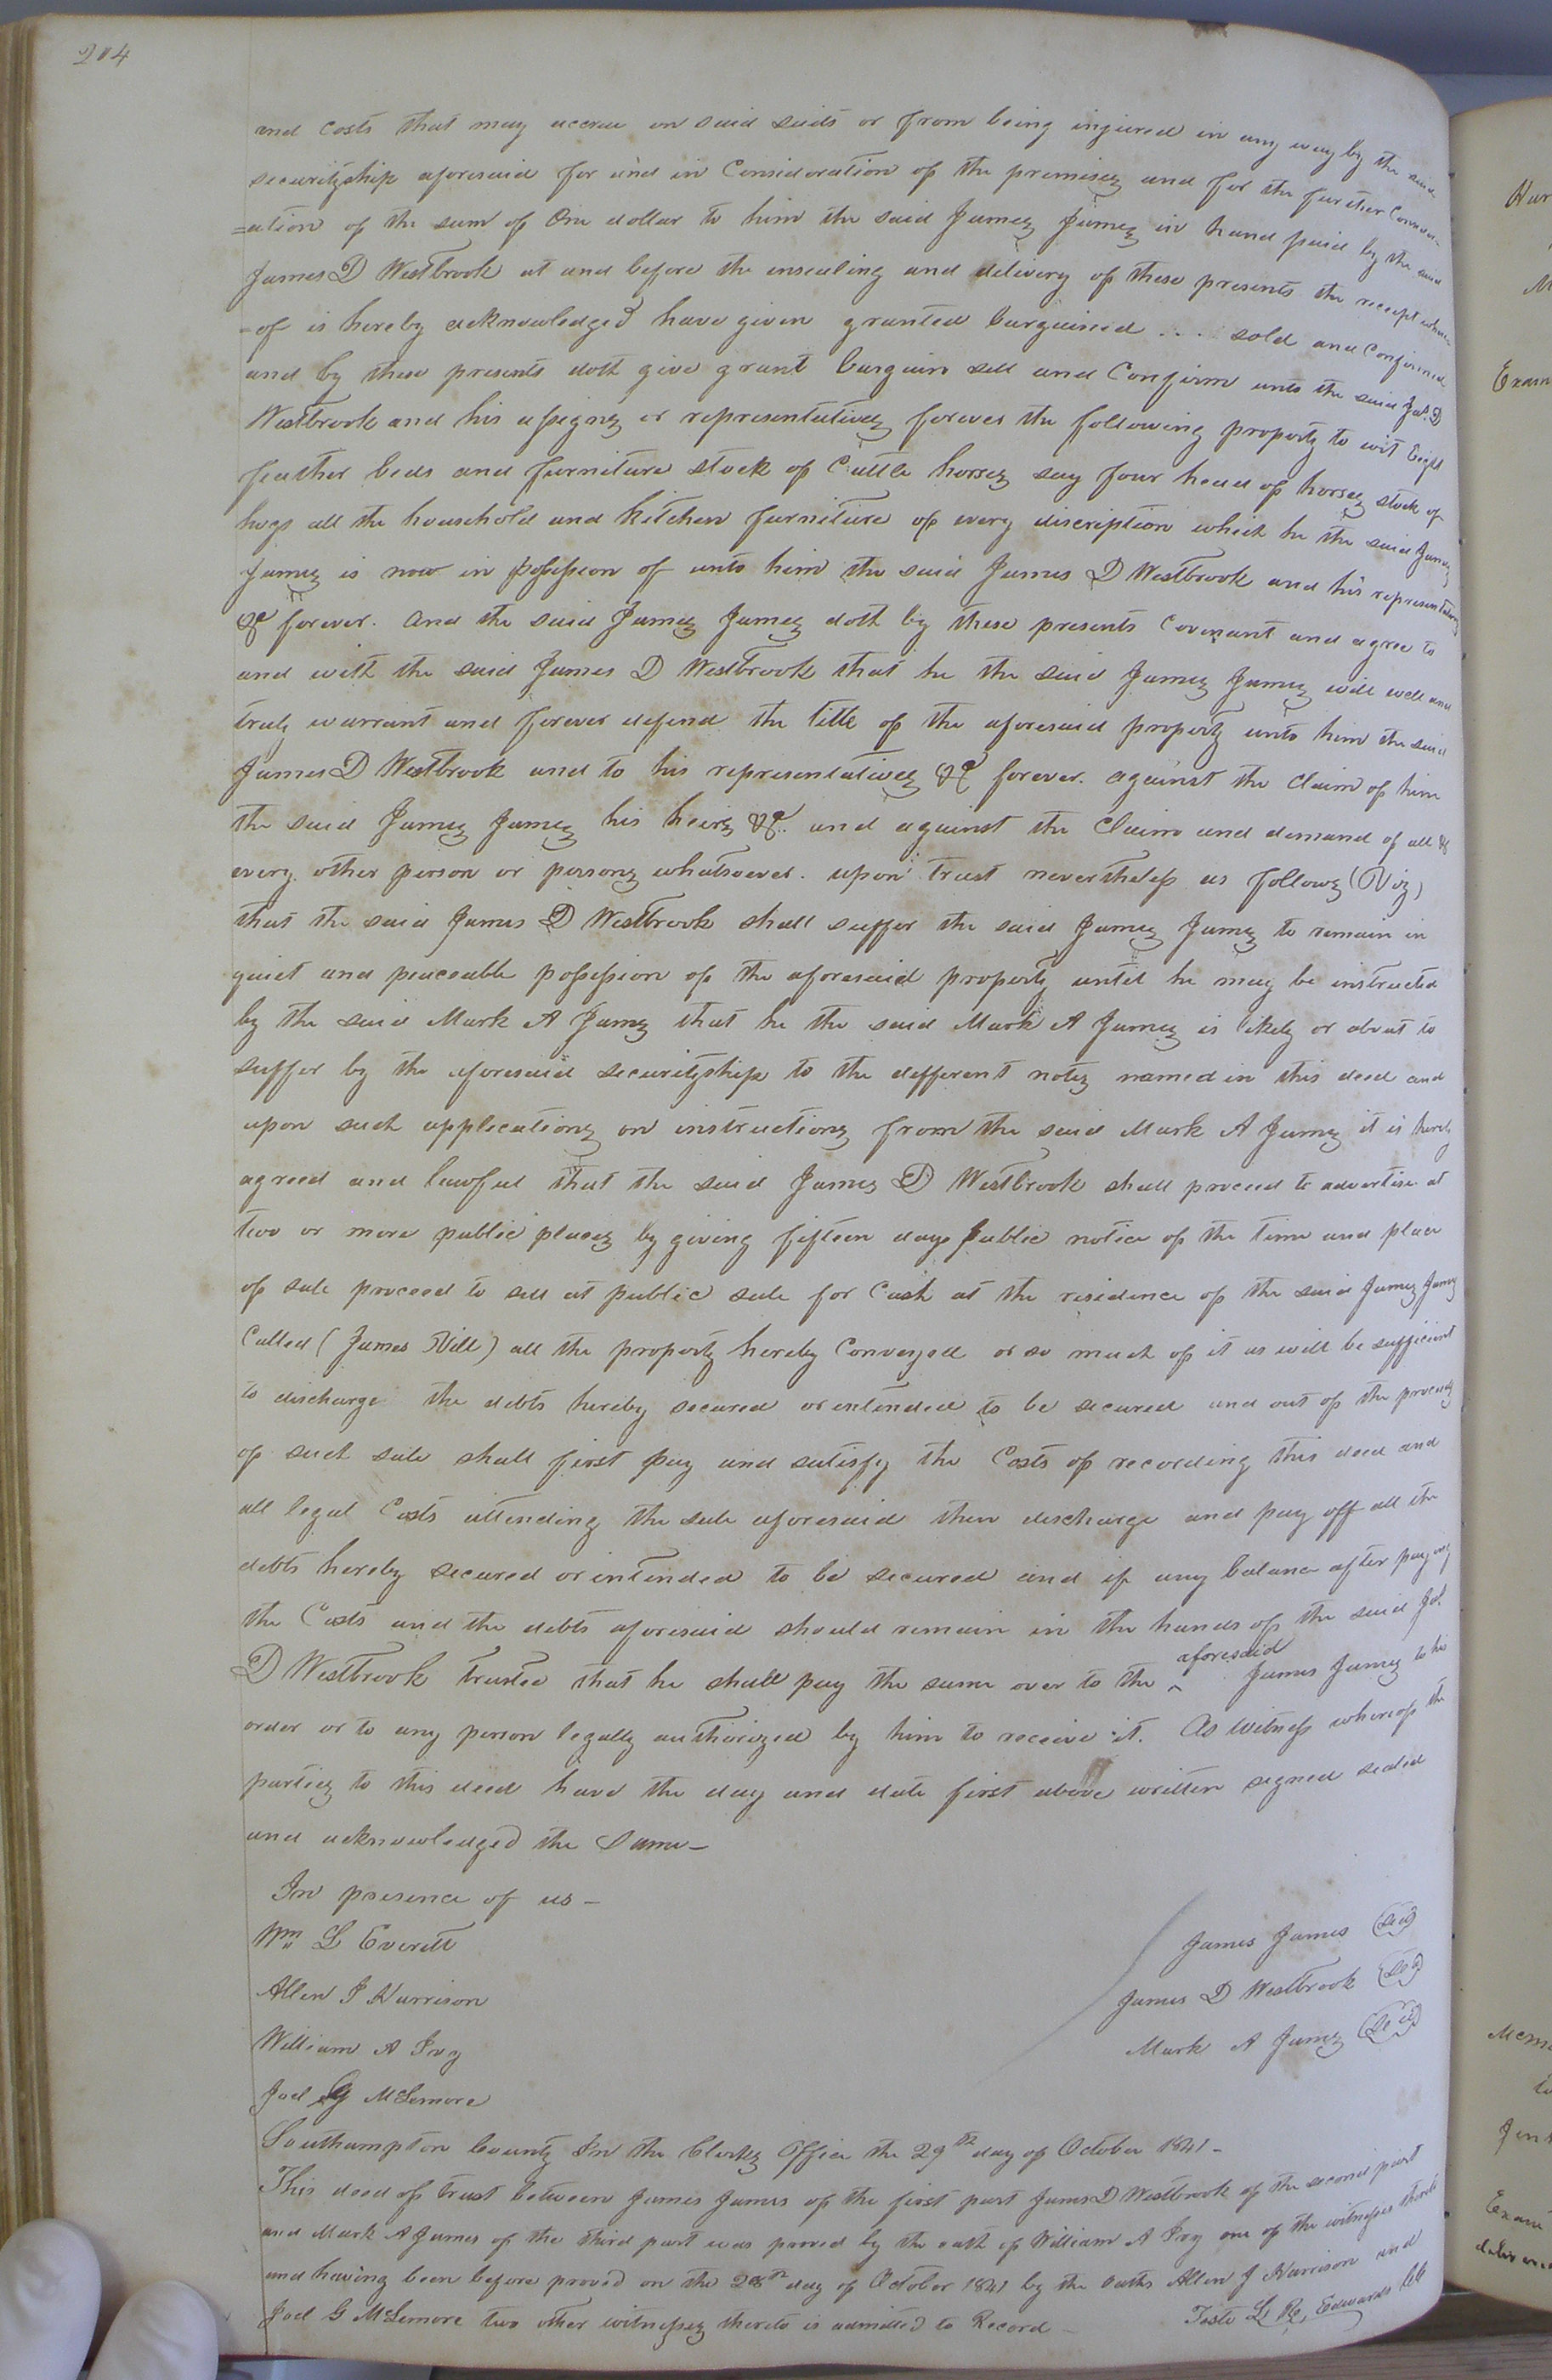 204
and costs that may accrue on said suits or from being injured in any way by the said
securityship aforesaid for and in Consideration of the premises and for the further Consider
=ation of the sum of One dollar to him the said James James in hand paid by the said
James D Westbrook at and before the ensealing and delivery of these presents the receipt where
=of is hereby acknowledged have given granted bargained .... sold and Confirmed
and by these presents doth give grant bargain sell and Confirm unto the said Jas. D
Westbrook and his assigns or representatives forever the following property to wit Eight
feather beds and furniture stock of Cattle horses say four head of horses stock of
hogs all the household and Kitchen furniture of every discription which he the said James
James is now in possession of unto him the said James D Westbrook and his representatives
&c forever. And the said James James doth by these presents Covenant and agree to
and with the said James D Westbrook that he the said James James will well and
truly warrant and forever defend the title of the aforesaid property unto him the said
James D Westbrook and to his representatives &c forever. against the Claim of him
the said James James his heirs &c. and against the Claim and demand of all &
every other person or persons whatsoever. upon trust nevertheless as follows (Viz)
that the said James D Westbrook shall suffer the said James James to remain in
quiet and peaceable possession of the aforesaid property until he may be instructed
by the said Mark A James that he the said Mark A James is likely or about to
suffer by the aforesaid securityship to the different notes named in this deed and
upon such applications on instructions from the said Mark A James it is hereby
agreed and lawful that the said James D Westbrook shall proceed to advertise at
two or more public places by giving fifteen days Public notice of the time and place
of sale proceed to sell at public sale for Cash at the residence of the said James James
Called (James Vill) all the property hereby Conveyed or so much of it as will be sufficient
to discharge the debts hereby secured or intended to be secured and out of the proceeds
of such sale shall first pay and satisfy the Costs of recording this deed and
all legal Costs attending the sale aforesaid then discharge and pay off all the
debts hereby secured or intended to be secured and if any balance after paying
the Costs and the debts aforesaid should remain in the hands of the said Jas.
D Westbrook trustee that he shall pay the same over to the ^ aforesaid James James to his
order or to any person legally authorized by him to receive it. As Witness whereof the
parties to this deed have the day and date first above written signed sealed
and acknowledged the Same—
In presence of us—
Wm L Everitt
Allen J Harrison
William A Ivy
Joel G McLemore
James James (Seal)
James D Westbrook (Seal)
Mark A James (Seal)
Southampton County In the Clerks Office the 29th day of October 1841—
This deed of trust between James James of the first part James D Westbrook of the second part
and Mark A James of the third part was proved by the oath of William A Ivy one of the witnesses thereto
and having been before proved on the 28th day of October 1841 by the oaths Allen J Harrison and
Joel G McLemore two other witnesses thereto is admitted to Record—
Teste L. R. Edwards Clk
Exam